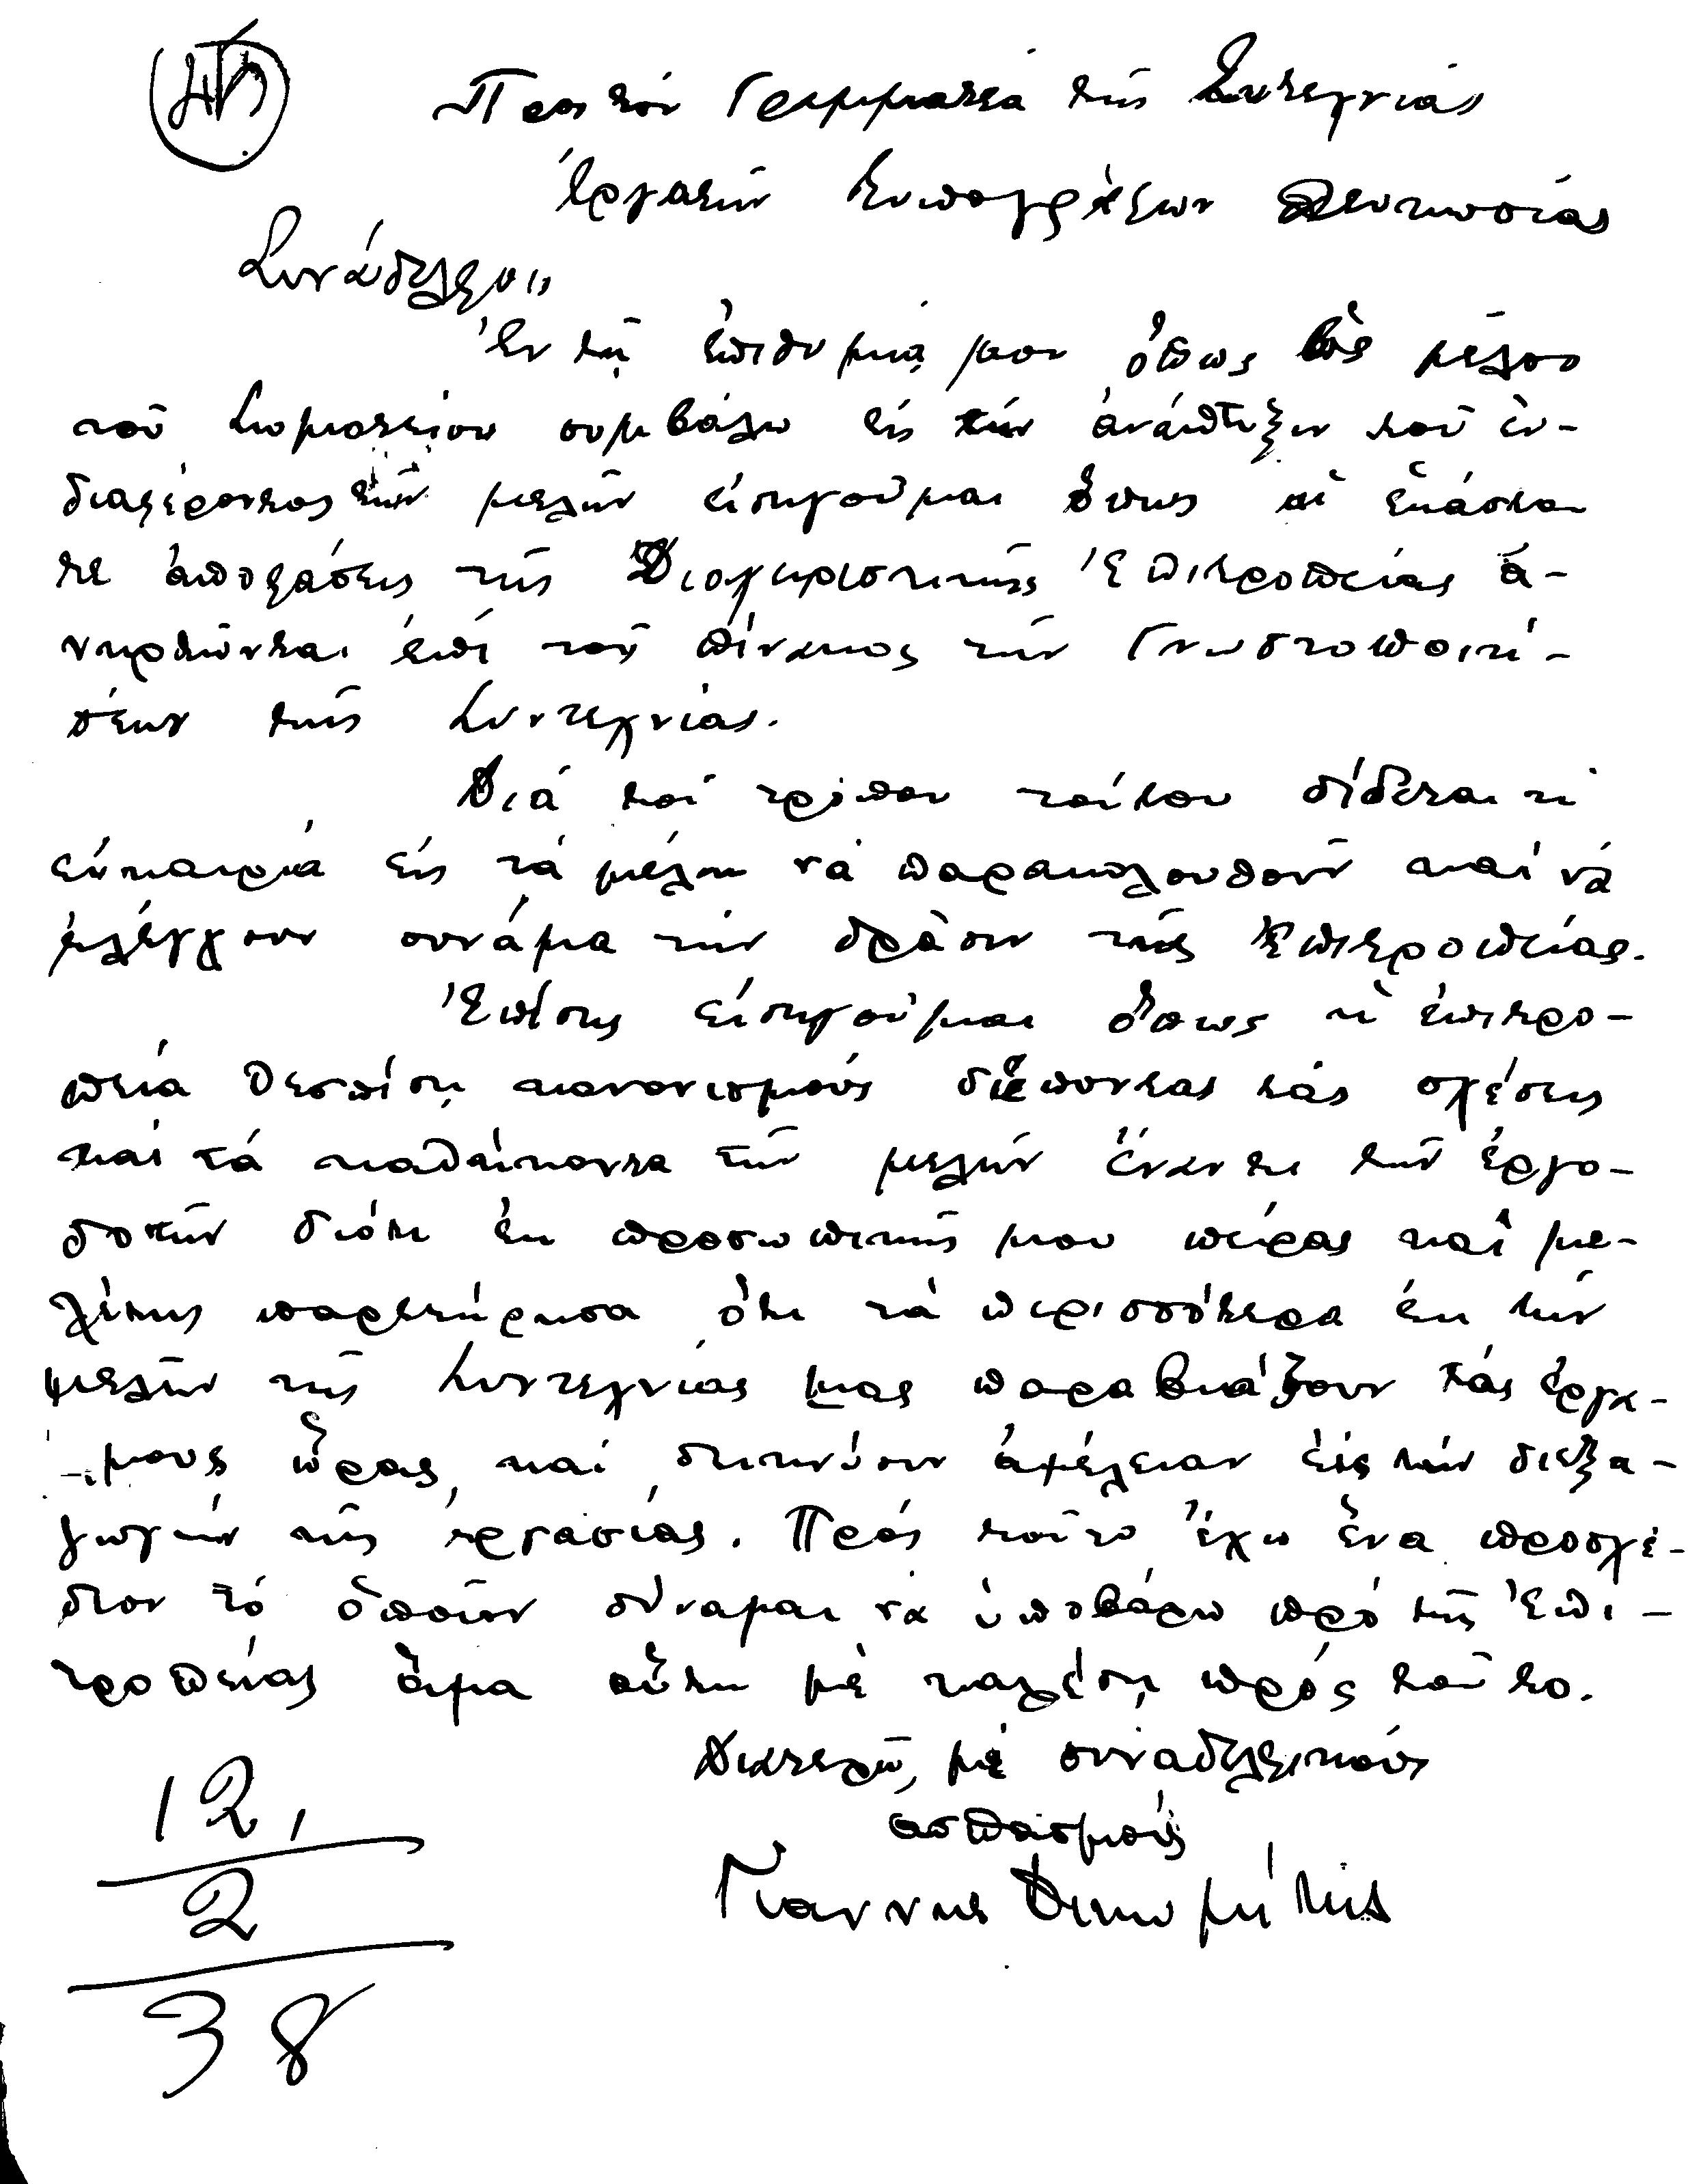 Προς τόν Γραμματέα τῆς Συντεχνίας
Ἐργατῶν Τυπογράφων Λευκωσίας
Συνάδελφοι,
Ἐν τῇ ἐπιθυμίᾳ μου ὅπως ὡς μέλος
τοῦ Σωματείου συμβάλω εἰς τήν ἀνάπτυξιν τοῦ ἐν-
διαφέροντος τῶν μελῶν εἰσηγοῦμαι ὅπως αἱ ἑκάστο-
τε ἀποφάσεις τῆς Διαχειριστικῆς Ἐπιτροπείας ἀ-
ναρτῶνται ἐπί τοῦ πίνακος τῶν Γνωστοποιή-
σεων τῆς Συντεχνίας.
Διά τοῦ τρόπου τούτου δίδεται ἡ
εὐκαιρία εἰς τά μέλη νά παρακολουθοῦν καί νά
ἐλέγχουν συνάμα τήν δρᾶσιν τῆς Ἐπιτροπείας.
Ἐπίσης εἰσηγοῦμαι ὅπως ἡ ἐπιτρο-
πεία θεσπίσῃ κανονισμούς διέποντας τάς σχέσεις
καί τά καθήκοντα τῶν μελῶν ἔναντι τῶν ἐργο-
δοτῶν διότι ἐκ προσωπικῆς μου πείρας καί με-
λέτης παρετήρησα ὅτι τά περισσότερα ἐκ τῶν
μελῶν τῆς Συντεχνίας μας παραβιάζουν τάς ἐργα-
-μους ὥρας, καί δεικνύουν ἀμέλειαν εἰς τήν διεξα-
γωγήν τῆς ἐργασίας. Πρός τοῦτο ἔχω ἕνα προσχέ-
διον τό ὁποῖον δύναμαι νά ὑποβάλω πρό τῆς Ἐπι-
τροπείας ἅμα αὕτη μέ καλέσῃ πρός τοῦτο.
Διατελῶ, μέ συναδελφικούς
ασπασμούς
Γιαννης
12,
2
38